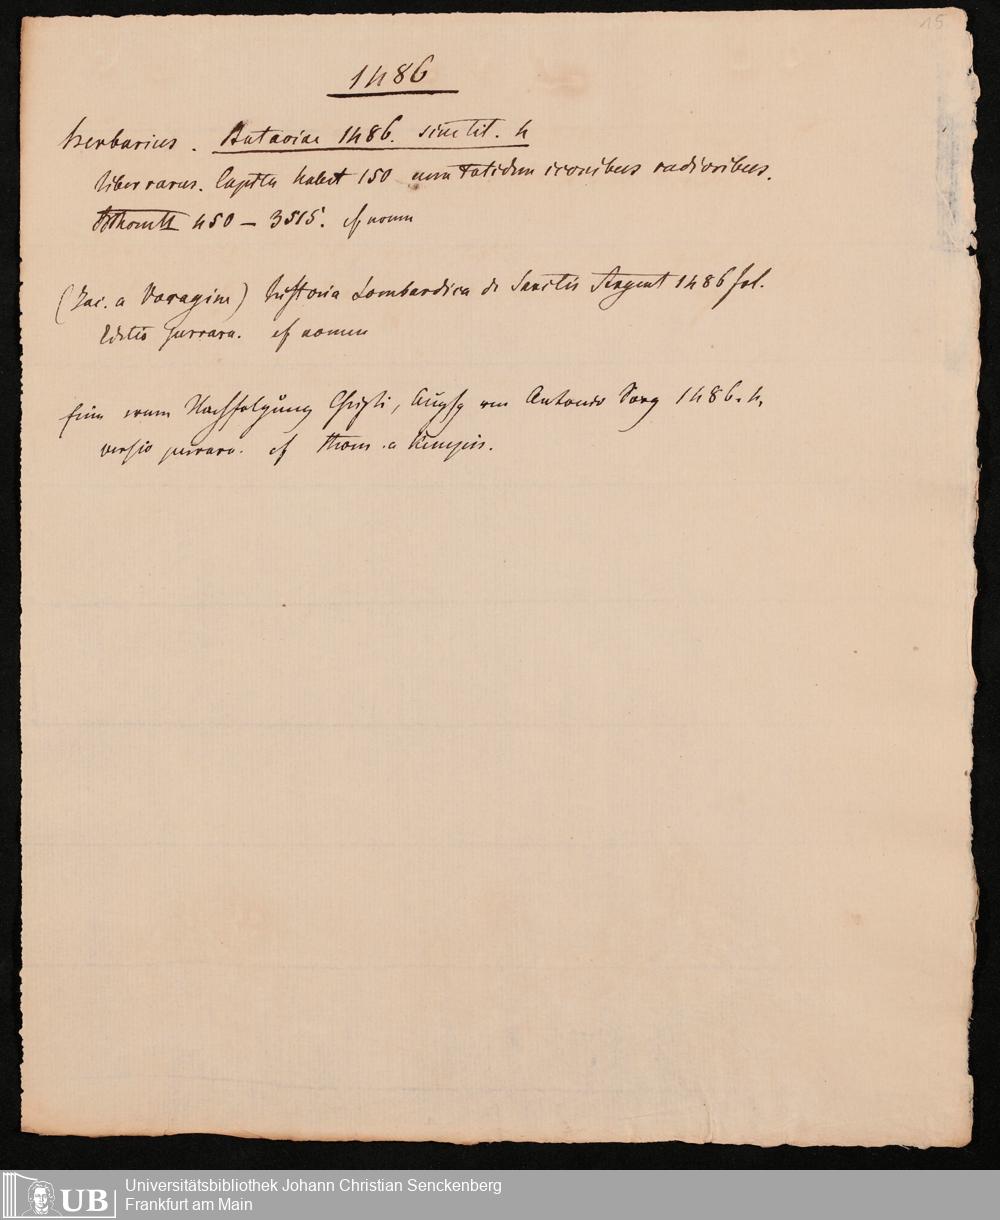 15
1486
herbarius. Bataviae 1486. sine tit. 4
liber rarus. Capita habet 150 cum totidem iconibus rudioribus.
450 – 3515. cf nomen
(Jac. a Voragine) historia Lombardica de Sanctis Argent 1486 fol.
Editio perrara. cf nomen
Eine ware Nachfolgung Christi, Augsp von Antonio Sorg 1486. 4.
versio perrara. cf Thom. a Kempis.
UB Universitätsbibliothek Johann Christian Senckenberg
Frankfurt am Main